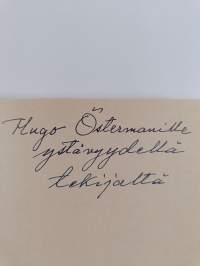 Hugo Östermanille
ystävyydellä
tekijältä